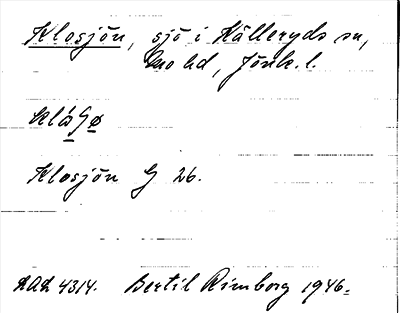 Klosjön, sjö i Källeryds sn,
Mo hd, Jönk. l.
Klosjön G 26.
ULMA 4314. Bertil Rimborg 1946.